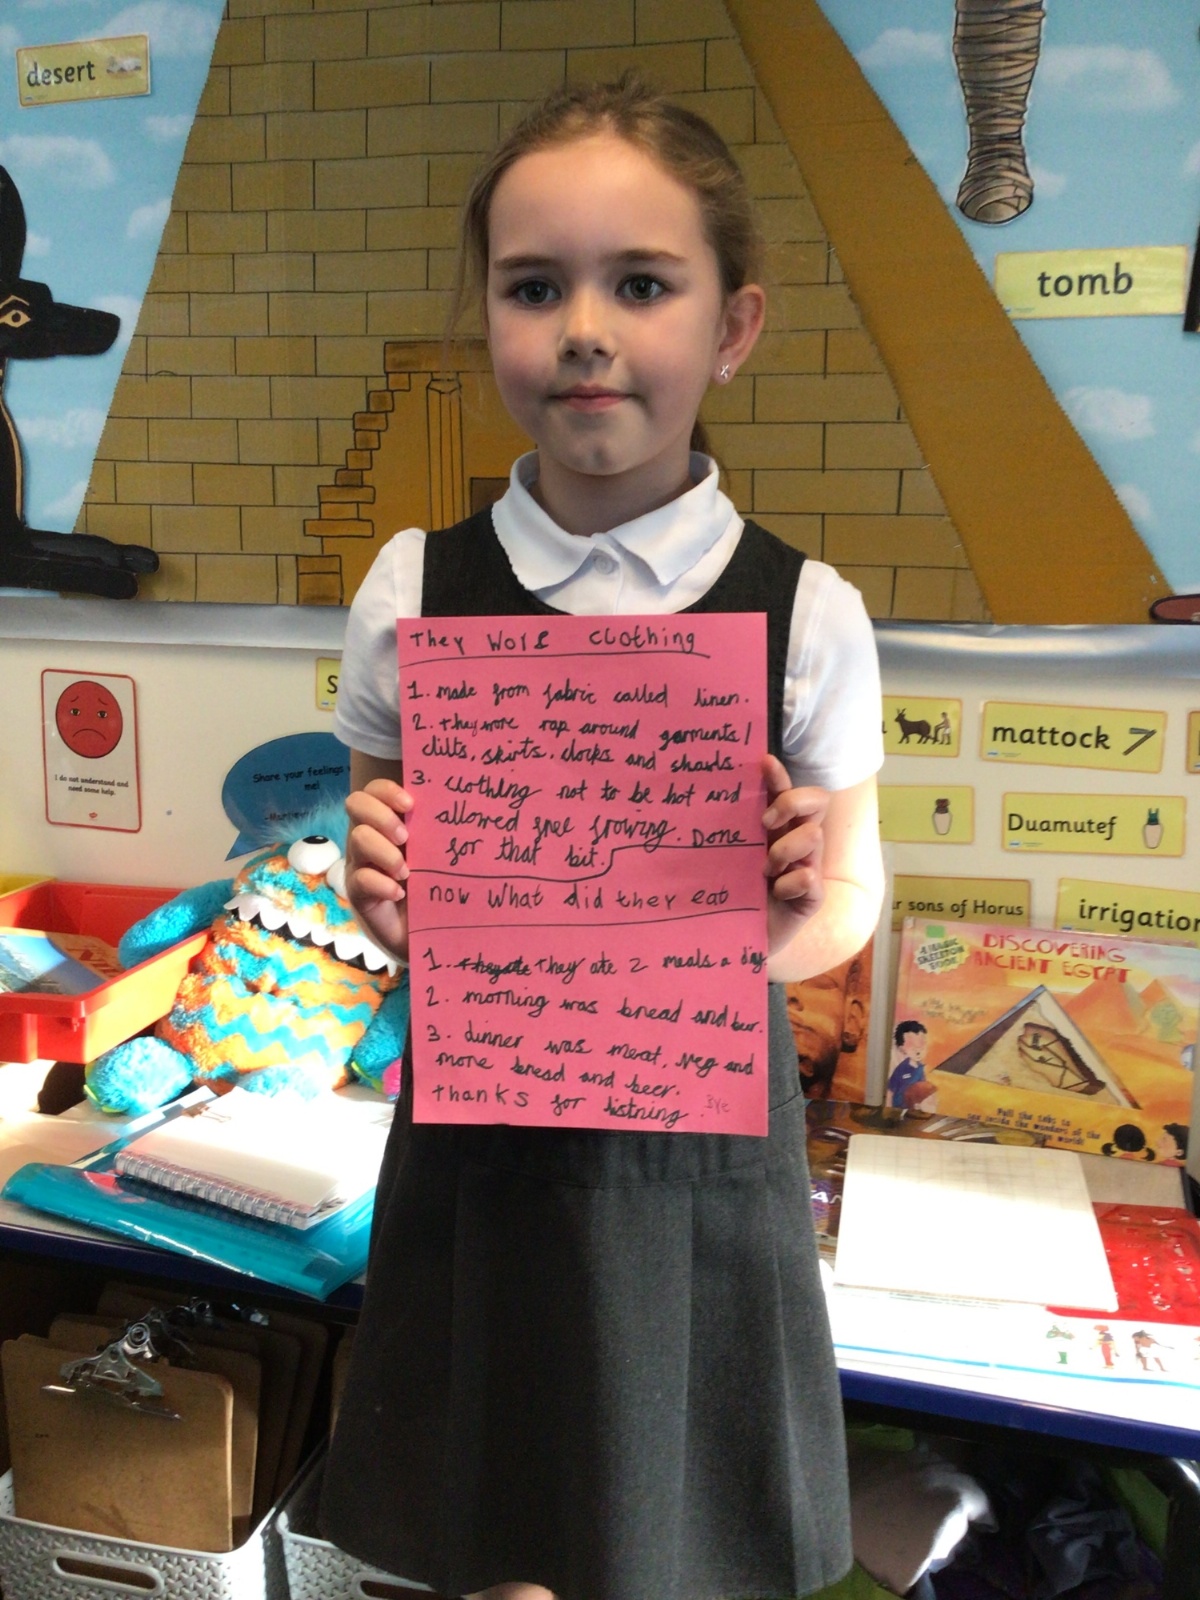 desert
tomb
They wore clothing
1. made from fabric called linen.
2. they wore rap around garments/
cilts, skirts, clocks and shawls.
3. clothing not to be hot and
allowed free frowing. Done
for that bit.
now What did they eat
1. They ate They ate 2 meals a day.
2. morning was bread and beer.
3. dinner was meat, veg and
more bread and beer.
thanks for listning. Bye
I do not understand and
need some help.
Share your feelings
me!
mattock
Duamutef
sons of Horus
irrigation
DISCOVERING
ANCIENT EGYPT
Pull the tabs to
see inside the wonders of the